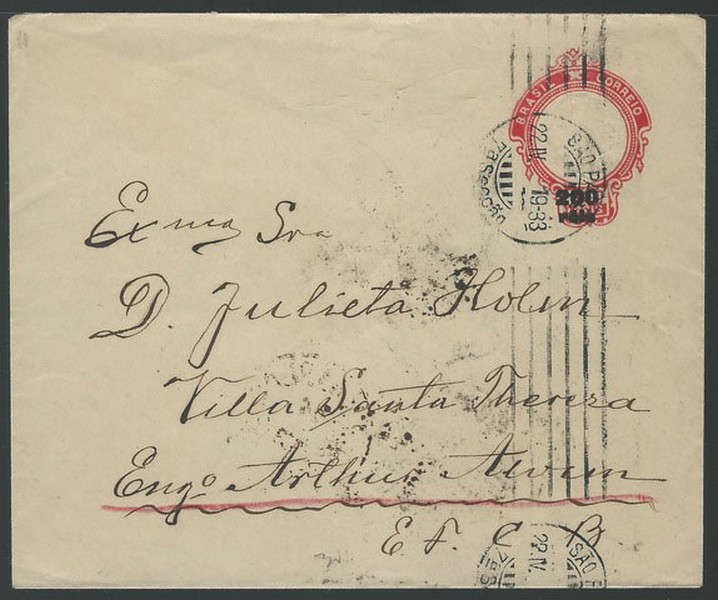 BRASIL CORREIO
200
REIS
SÃO P
22 IV
19-33
7ª Secção
Exma Sra
D. Julieta Holm
Villa Santa Thereza
Engo Arthur Alvim
E F. C B
SÃO P
22 IV
7ª S